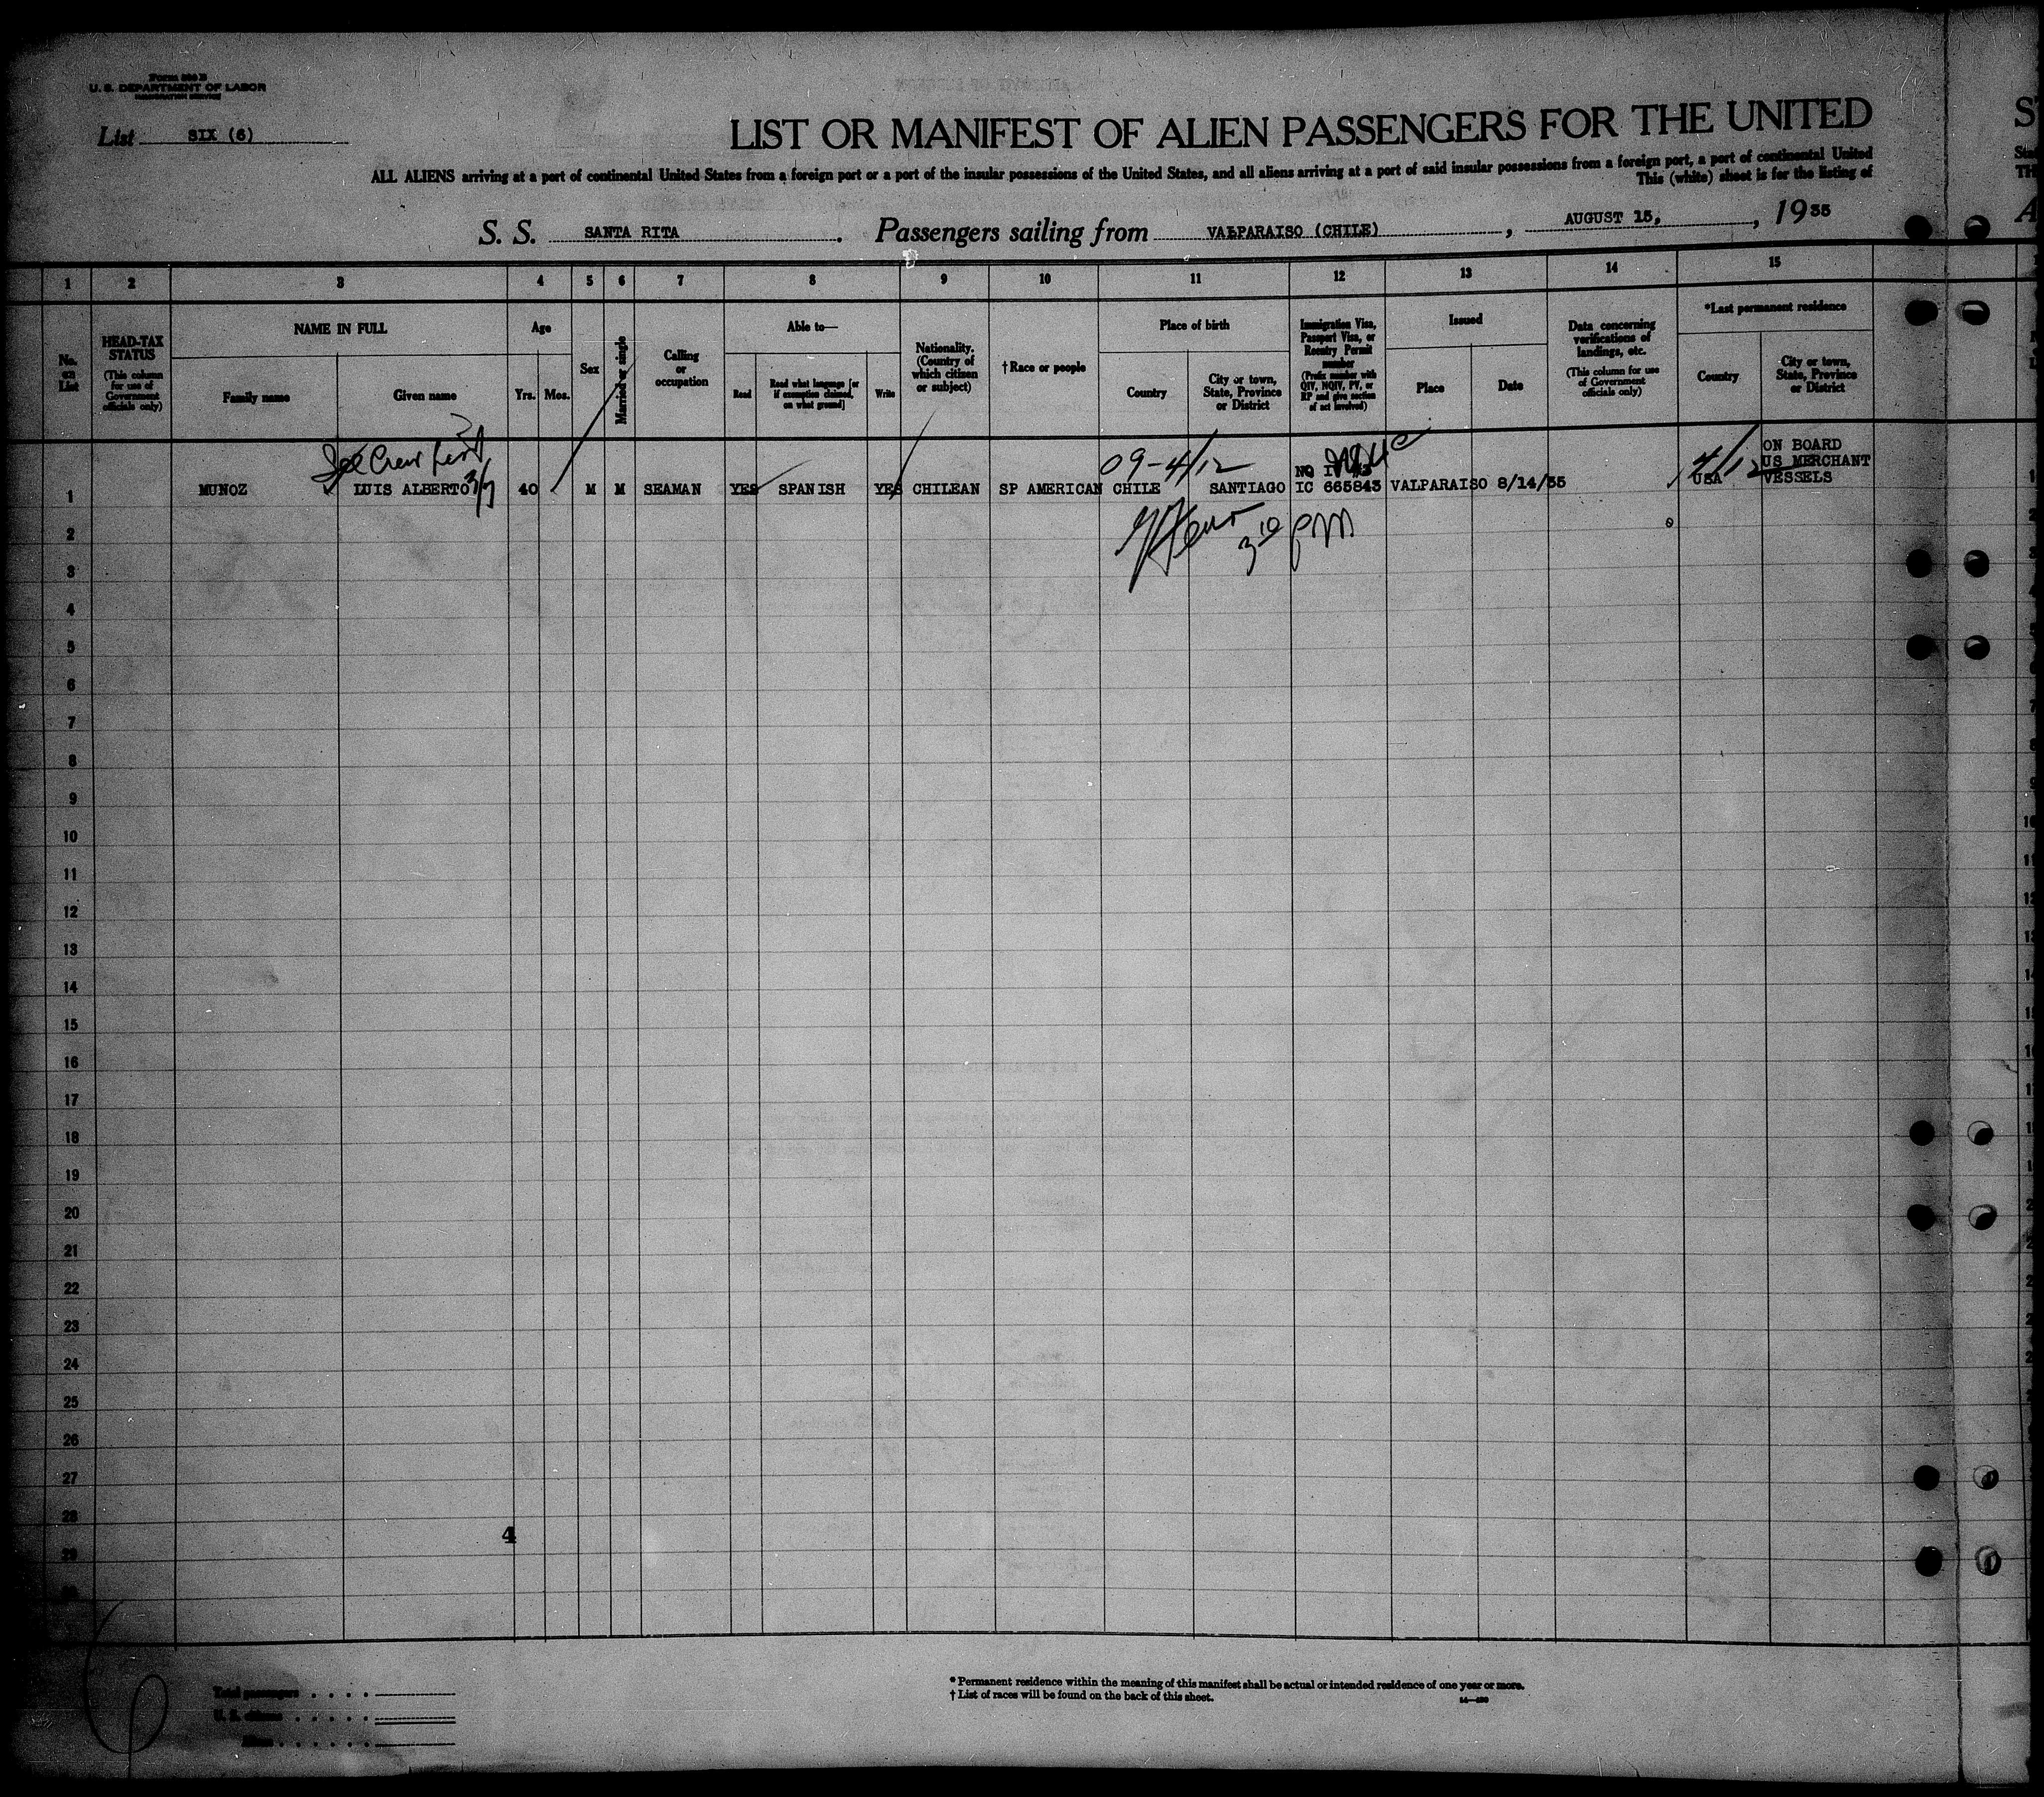 Form 500 B
U. S. DEPARTMENT OF LABOR
IMMIGRATION SERVICE
List SIX (6)
LIST OR MANIFEST OF ALIEN PASSENGERS FOR THE UNITED
ALL ALIENS arriving at a port of continental United States from a foreign port or a port of the insular possessions of the United States, and all aliens arriving at a port of said insular possessions from a foreign port, a port of continental United
This (white) sheet is for the listing of
S. S. SANTA RITA. Passengers sailing from VALPARAISO (CHILE), AUGUST 15, 1935
1 2 3 4 5 6 7 8 9 10 11 12 13 14 15
No. on List
HEAD-TAX STATUS
(This column for use of Government officials only)
NAME IN FULL
Family name
Given name
Age
Yrs.
Mos.
Sex
Married or single
Calling or occupation
Able to—
Read
Read what language [or if exemption claimed, on what ground]
Write
Nationality. (Country of which citizen or subject)
† Race or people
Place of birth
Country
City or town, State, Province or District
Immigration Visa, Passport Visa, or Reentry Permit number
(Prefix number with QIV, NQIV, PV, or RP and give section of act involved)
Issued
Place
Date
Data concerning verifications of landings, etc.
(This column for use of Government officials only)
*Last permanent residence
Country
City or town, State, Province or District
See Crew List
09-4/12
4/12
ON BOARD
US MERCHANT
1 MUNOZ LUIS ALBERTO 40 M M SEAMAN YES SPANISH YES CHILEAN SP AMERICAN CHILE SANTIAGO IC 665843 VALPARAISO 8/14/35 USA VESSELS
2
3 10 PM
3
4
5
6
7
8
9
10
11
12
13
14
15
16
17
18
19
20
21
22
23
24
25
26
27
28
4
29
30
Total passengers
U. S. citizens
Aliens
* Permanent residence within the meaning of this manifest shall be actual or intended residence of one year or more.
† List of races will be found on the back of this sheet.